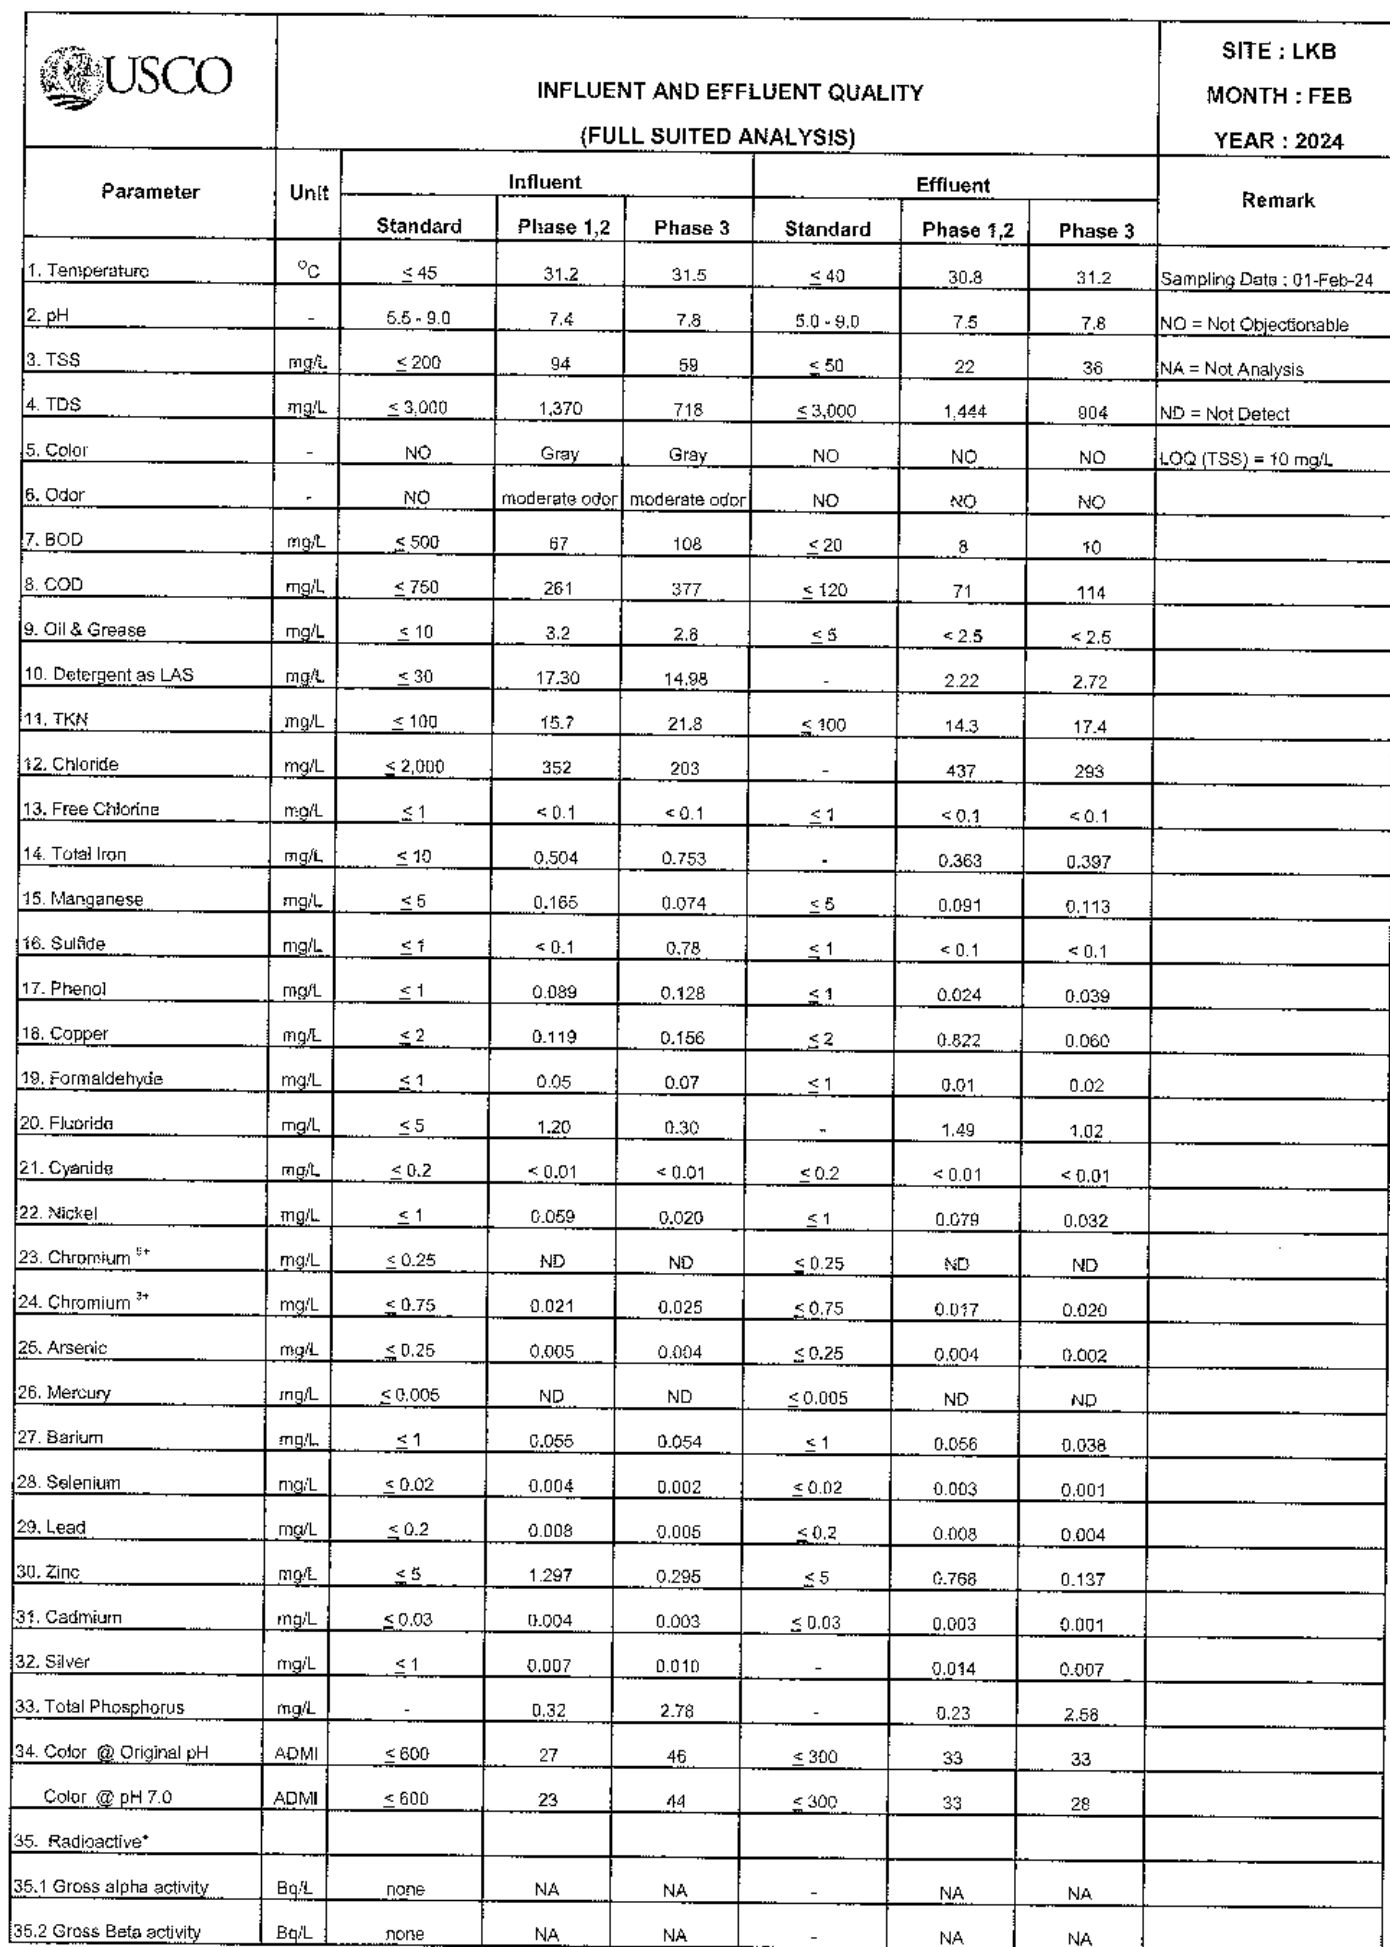 USCO
INFLUENT AND EFFLUENT QUALITY
(FULL SUITED ANALYSIS)
SITE : LKB
MONTH : FEB
YEAR : 2024
Parameter Unit Influent Effluent Remark
Standard Phase 1,2 Phase 3 Standard Phase 1,2 Phase 3
1. Temperature °C ≤ 45 31.2 31.5 ≤ 40 30.8 31.2 Sampling Date : 01-Feb-24
2. pH - 5.5 - 9.0 7.4 7.8 5.0 - 9.0 7.5 7.8 NO = Not Objectionable
3. TSS mg/L ≤ 200 94 59 ≤ 50 22 36 NA = Not Analysis
4. TDS mg/L ≤ 3,000 1,370 718 ≤ 3,000 1,444 904 ND = Not Detect
5. Color - NO Gray Gray NO NO NO LOQ (TSS) = 10 mg/L
6. Odor - NO moderate odor moderate odor NO NO NO
7. BOD mg/L ≤ 500 67 108 ≤ 20 8 10
8. COD mg/L ≤ 750 261 377 ≤ 120 71 114
9. Oil & Grease mg/L ≤ 10 3.2 2.8 ≤ 5 < 2.5 < 2.5
10. Detergent as LAS mg/L ≤ 30 17.30 14.98 - 2.22 2.72
11. TKN mg/L ≤ 100 15.7 21.8 ≤ 100 14.3 17.4
12. Chloride mg/L ≤ 2,000 352 203 - 437 293
13. Free Chlorine mg/L ≤ 1 < 0.1 < 0.1 ≤ 1 < 0.1 < 0.1
14. Total Iron mg/L ≤ 10 0.504 0.753 - 0.363 0.397
15. Manganese mg/L ≤ 5 0.165 0.074 ≤ 5 0.091 0.113
16. Sulfide mg/L ≤ 1 < 0.1 0.78 ≤ 1 < 0.1 < 0.1
17. Phenol mg/L ≤ 1 0.089 0.128 ≤ 1 0.024 0.039
18. Copper mg/L ≤ 2 0.119 0.156 ≤ 2 0.822 0.060
19. Formaldehyde mg/L ≤ 1 0.05 0.07 ≤ 1 0.01 0.02
20. Fluoride mg/L ≤ 5 1.20 0.30 - 1.49 1.02
21. Cyanide mg/L ≤ 0.2 < 0.01 < 0.01 ≤ 0.2 < 0.01 < 0.01
22. Nickel mg/L ≤ 1 0.059 0.020 ≤ 1 0.079 0.032
23. Chromium ⁶⁺ mg/L ≤ 0.25 ND ND ≤ 0.25 ND ND
24. Chromium ³⁺ mg/L ≤ 0.75 0.021 0.025 ≤ 0.75 0.017 0.020
25. Arsenic mg/L ≤ 0.25 0.005 0.004 ≤ 0.25 0.004 0.002
26. Mercury mg/L ≤ 0.005 ND ND ≤ 0.005 ND ND
27. Barium mg/L ≤ 1 0.055 0.054 ≤ 1 0.056 0.038
28. Selenium mg/L ≤ 0.02 0.004 0.002 ≤ 0.02 0.003 0.001
29. Lead mg/L ≤ 0.2 0.008 0.005 ≤ 0.2 0.008 0.004
30. Zinc mg/L ≤ 5 1.297 0.295 ≤ 5 0.768 0.137
31. Cadmium mg/L ≤ 0.03 0.004 0.003 ≤ 0.03 0.003 0.001
32. Silver mg/L ≤ 1 0.007 0.010 - 0.014 0.007
33. Total Phosphorus mg/L - 0.32 2.78 - 0.23 2.58
34. Color @ Original pH ADMI ≤ 600 27 46 ≤ 300 33 33
Color @ pH 7.0 ADMI ≤ 600 23 44 ≤ 300 33 28
35. Radioactive*
35.1 Gross alpha activity Bq/L none NA NA - NA NA
35.2 Gross Beta activity Bq/L none NA NA - NA NA